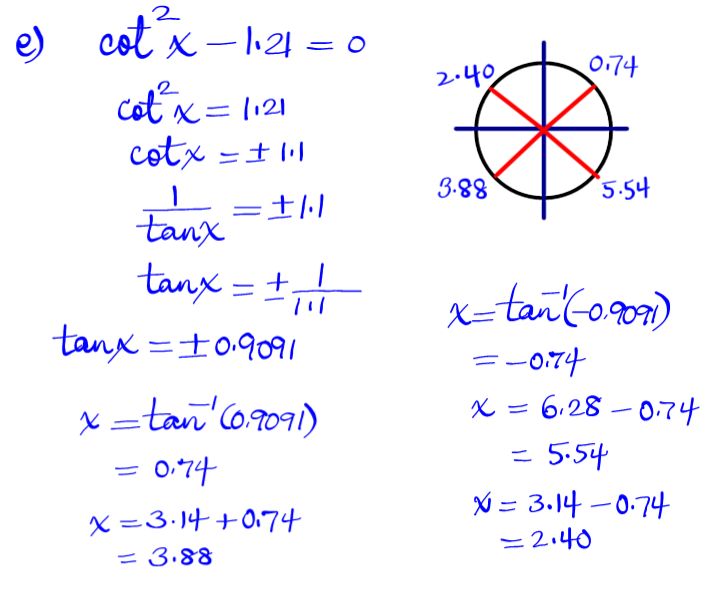 e) cot²x - 1.21 = 0
cot²x = 1.21
cotx = ± 1.1
1/tanx = ± 1.1
tanx = ± 1/1.1
tanx = ± 0.9091
x = tan⁻¹(0.9091)
= 0.74
x = 3.14 + 0.74
= 3.88
2.40
0.74
3.88
5.54
x = tan⁻¹(-0.9091)
= -0.74
x = 6.28 - 0.74
= 5.54
x = 3.14 - 0.74
= 2.40